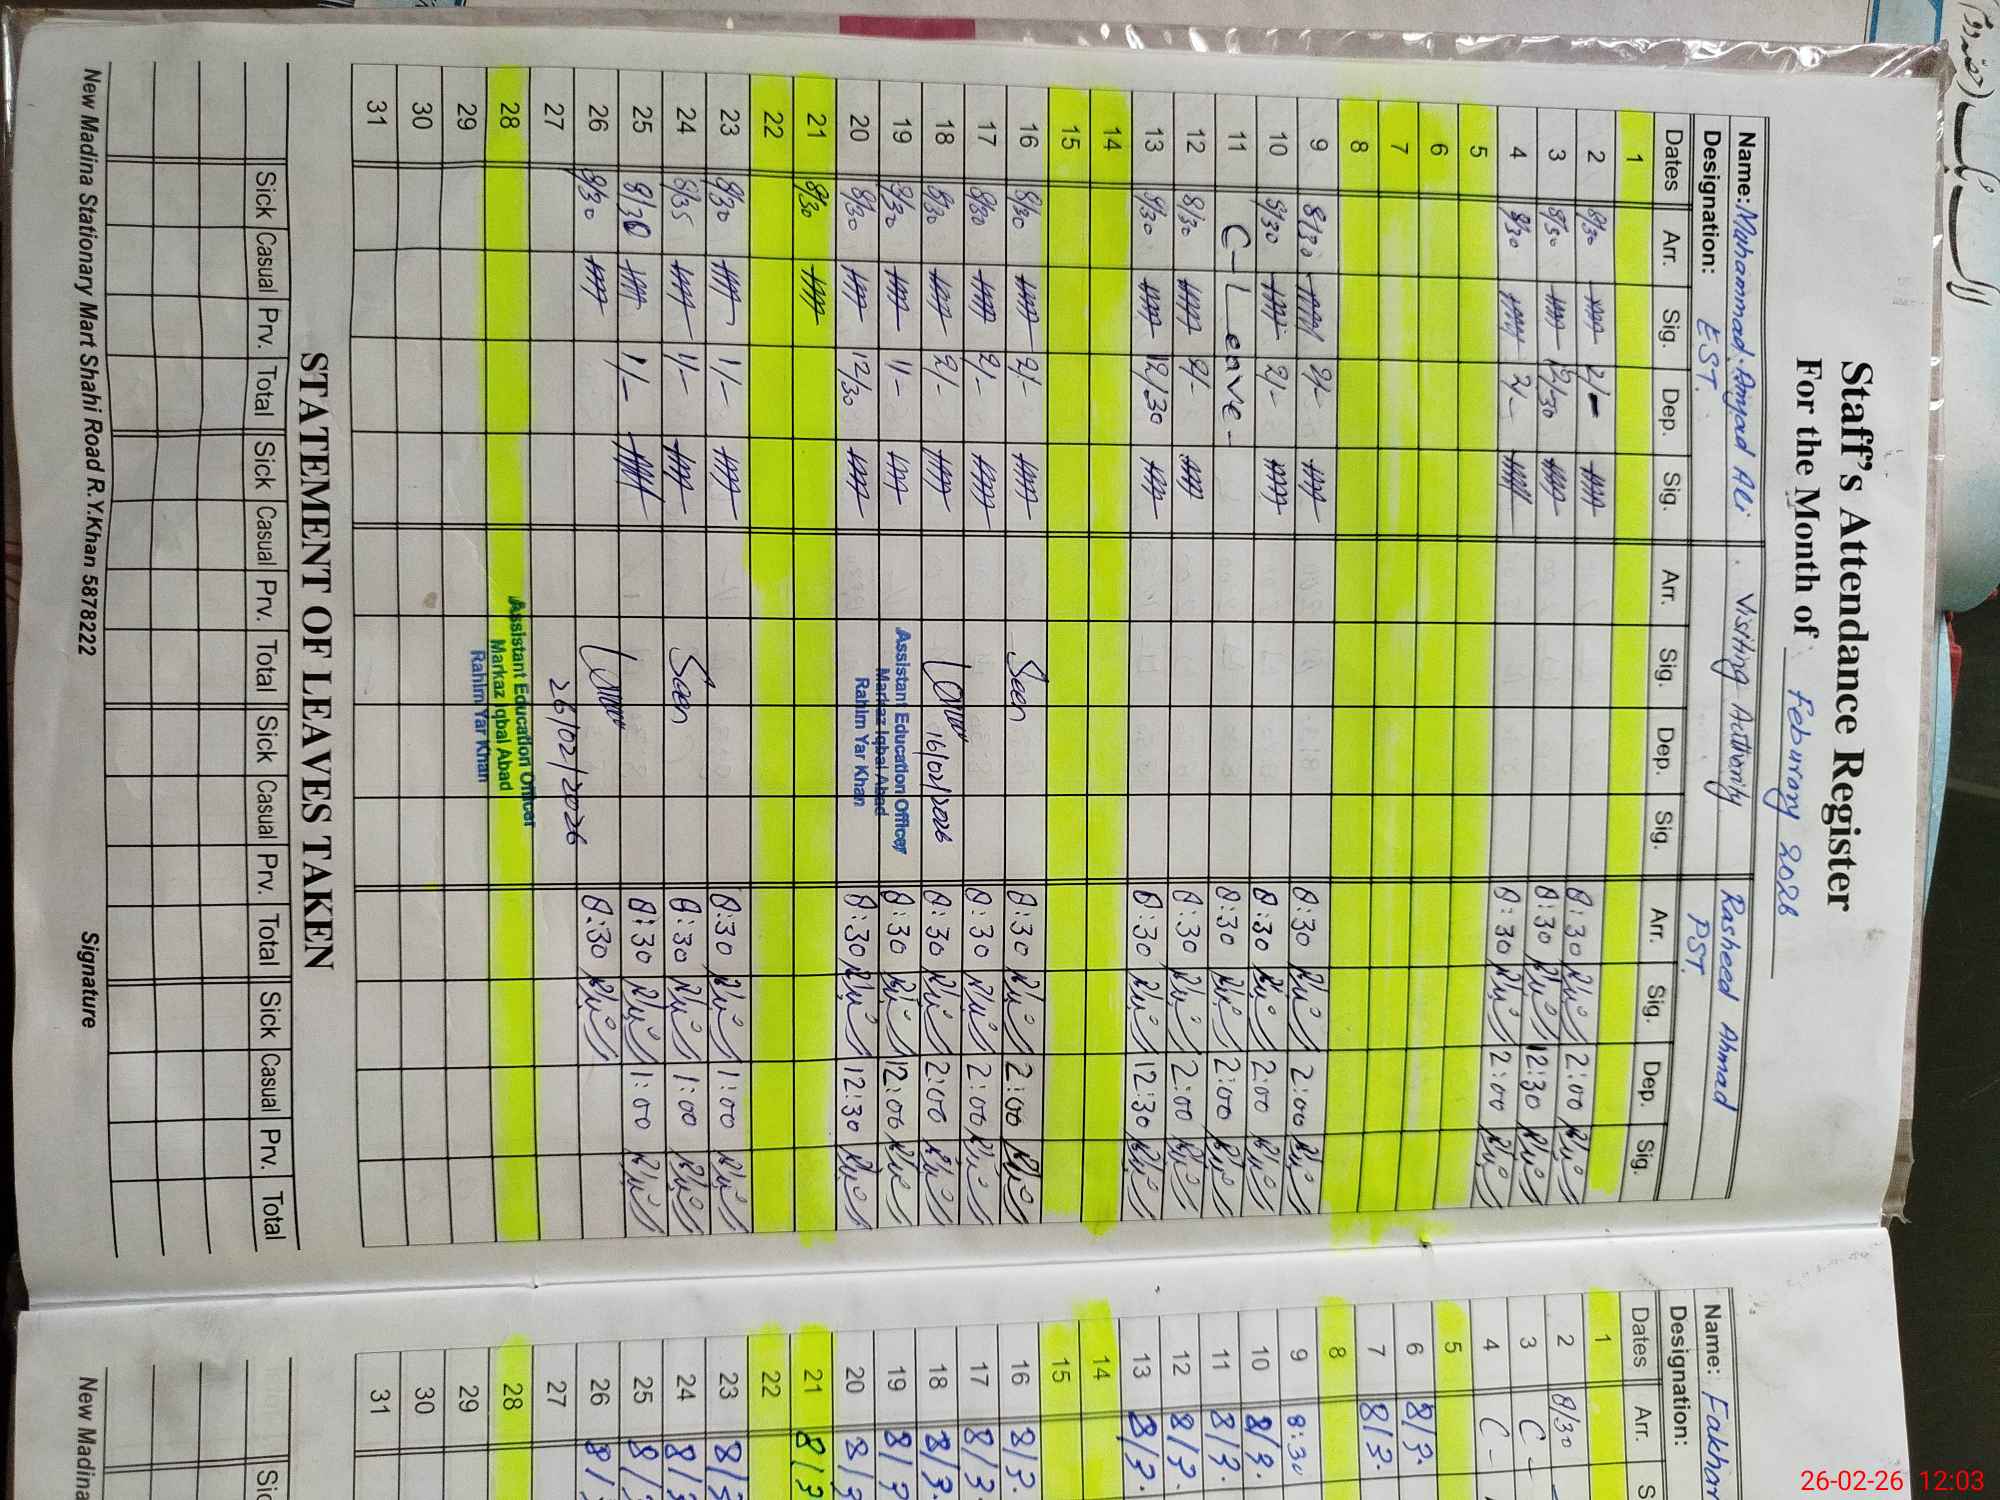 Staff's Attendance Register
For the Month of Feburary 2026
Name: Muhammad Amjad Ali Visiting Authority Rasheed Ahmad
Designation: EST PST
Dates Arr. Sig. Dep. Sig. Arr. Sig. Dep. Sig. Arr. Sig. Dep. Sig.
1
2 8/30 2/- 8:30 2:00
3 8/30 12/30 8:30 12:30
4 8/30 2/- 8:30 2:00
5
6
7
8
9 8/30 2/- 8:30 2:00
10 8/30 2/- 8:30 2:00
11 C-Leave- 8:30 2:00
12 8/30 2/- 8:30 2:00
13 8/30 12/30 8:30 12:30
14
15
16 8/30 2/- Seen 8:30 2:00
17 8/30 2/- 8:30 2:00
18 8/30 2/- 16/02/2026 8:30 2:00
19 8/30 1/- Assistant Education Officer 8:30 12:00
Markaz Iqbal Abad
20 8/30 12/30 Rahim Yar Khan 8:30 12:30
21 8/30
22
23 8/30 1/- 8:30 1:00
24 8/35 1/- Seen 8:30 1:00
25 8/30 1/- 8:30 1:00
26 8/30 8:30
27 26/02/2026
28 Assistant Education Officer
Markaz Iqbal Abad
29 Rahim Yar Khan
30
31
STATEMENT OF LEAVES TAKEN
Sick Casual Prv. Total Sick Casual Prv. Total Sick Casual Prv. Total Sick Casual Prv. Total
New Madina Stationary Mart Shahi Road R.Y.Khan 5878222 Signature
Name: Fakhar
Designation:
Dates Arr. S
1
2 8/30
3 C-
4 C-
5
6 8/3.
7 8/3.
8
9 8:30
10 8/3.
11 8/3.
12 8/3.
13 8/3.
14
15
16 8/3.
17 8/3.
18 8/3.
19 8/3
20 8/3
21 8/3
22
23 8/3
24 8/3
25 8/
26 8/
27
28
29
30
31
Sic
New Madina
26-02-26 12:03